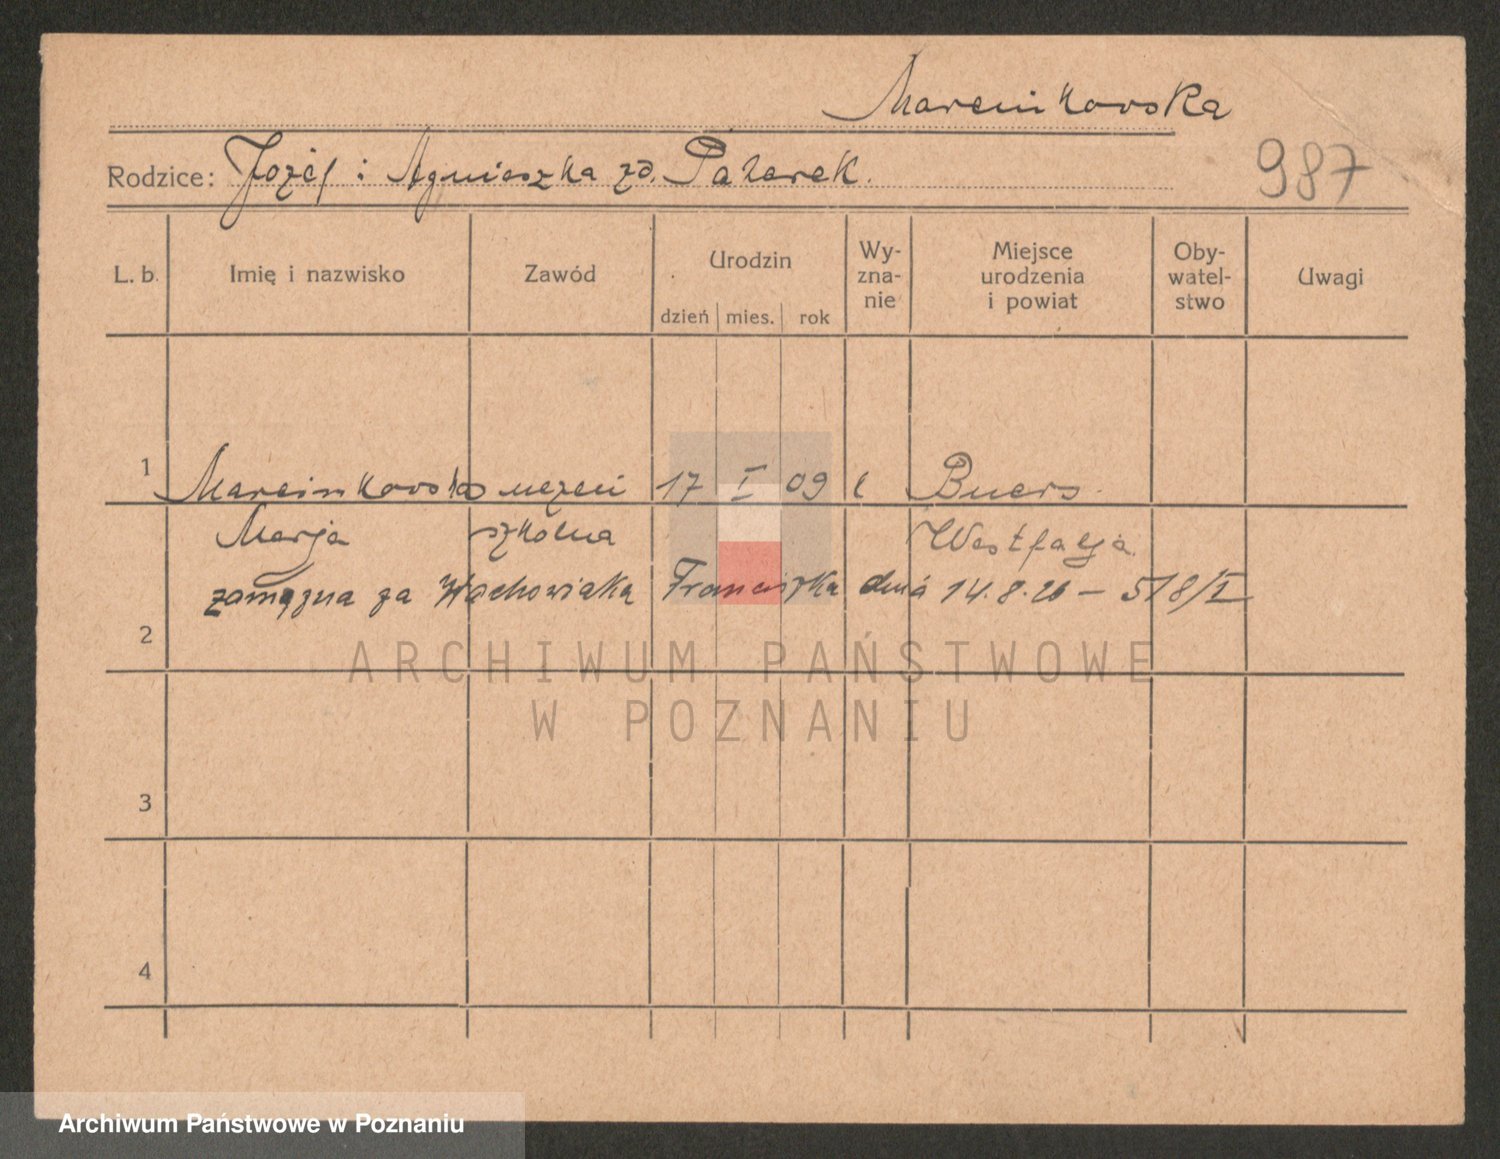 Marcinkowska
Rodzice: Józef i Agnieszka zd.
987
L. b. Imię i nazwisko Zawód Urodzin Wy-zna-nie Miejsce urodzenia i powiat Oby-watel-stwo Uwagi
dzień mies. rok
1 Marcinkowska uczeni 17 I 09 Buers
Marja szkolna Westfalja
zamężna za Wachowiaka Franciszka dnia 14.8.26 – 518/I
2
ARCHIWUM PAŃSTWOWE
W POZNANIU
3
4
Archiwum Państwowe w Poznaniu